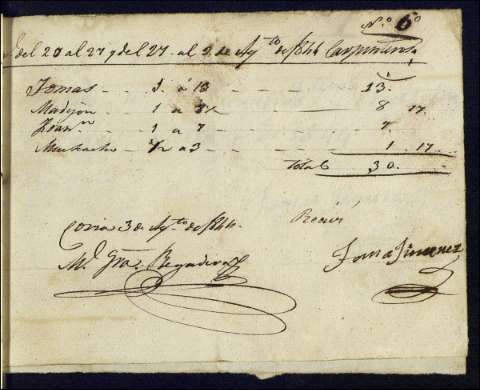 N.º 6º
del 20 al 27 y del 27 al 2 de Ag.to de 1844
Tomas 1 á 13 13.
1 a 8½ 8 17.
1 a 7 7.
Muchacho ½ a 3 1 17
Total 30.
Coria 3 de Ag.to de 1844. Recivi
M.l
Toma Jimenez